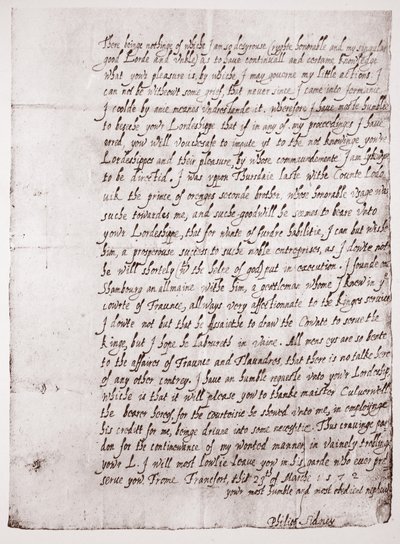 There beinge nothinge of whiche I am so desyrouse (ryghte honorable and my singular
good Lorde and Unkle) as to have continuall and certaine knowledge
what your pleasure is, by whiche I may governe my little actions, I
can not be without some greef, that never since I came into Germanie
I coulde by anie meanes understande it. wherefore I have moste humblie
to beseche your Lordeshippe that if in any of my proceedinges I have
erred, you will vouchesafe to impute yt to the not knowinge your
Lordeshippes and their pleasure, by whose commaundemente I am
to be directed. I was uppon Thursdaie laste withe Counte Lodo
wik the prince of oranges seconde brother, whose honorable usage was
suche towardes me, and suche goodwill he seemes to beare unto
your Lordeshippe, that for wante of furdre habilitie, I can but wishe
him, a prosperouse success to suche noble entreprises, as I dowte not
he will shortely (withe the helpe of god) put in execution. I founde one
Shambourg an allmaine withe him, a gentleman whome I knew in
courte of Fraunce, allwaies very affectionate to the kinges service,
I dowte not but that he assaiethe to draw the Counte to serve the
kinge, but I hope he laboureth in vaine. All mens eys are so bente
to the affaires of Fraunce and Flaundres, that there is no talke here
of any other contrey. I have an humble requeste unto your Lordeship
whiche is that it will please you to thanke maister Culverwell
the bearer hereof, for the Courtoisie he shewed unto me, in employinge
his credit for me, beinge driven into some necessitie. Thus cravinge par
don for the continewance of my wonted manner, in vainely trowblinge
your L. I will most lowlie Leave you in his garde who ever pre
serve you. Frome Francfort, this 23th of Marche. 1572
your most humble and most obedient nephew
Philip Sidney